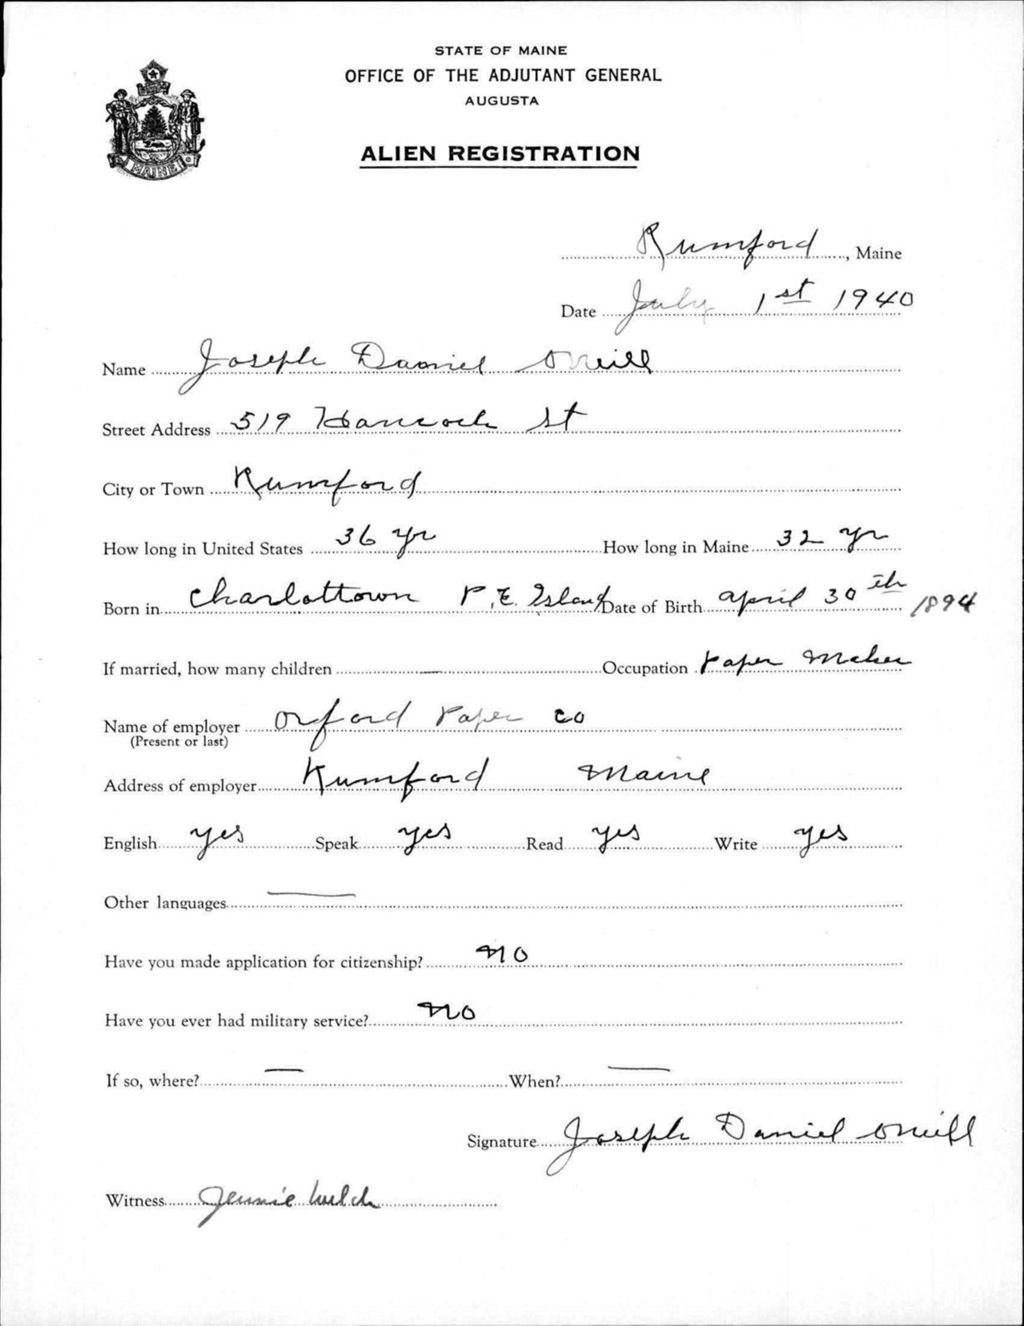 STATE OF MAINE
OFFICE OF THE ADJUTANT GENERAL
AUGUSTA
ALIEN REGISTRATION
MAINE
Rumford, Maine
Date July 1st 1940
Name Joseph Daniel ONeill
Street Address 519 Hancock St
City or Town Rumford
How long in United States 36 yr How long in Maine 32 yr
Born in Charlottown P.E. Island Date of Birth April 30th 1894
If married, how many children — Occupation Paper Maker
Name of employer Oxford Paper Co
(Present or last)
Address of employer Rumford Maine
English yes Speak yes Read yes Write yes
Other languages —
Have you made application for citizenship? No
Have you ever had military service? No
If so, where? — When? —
Signature Joseph Daniel ONeill
Witness Jennie Welch